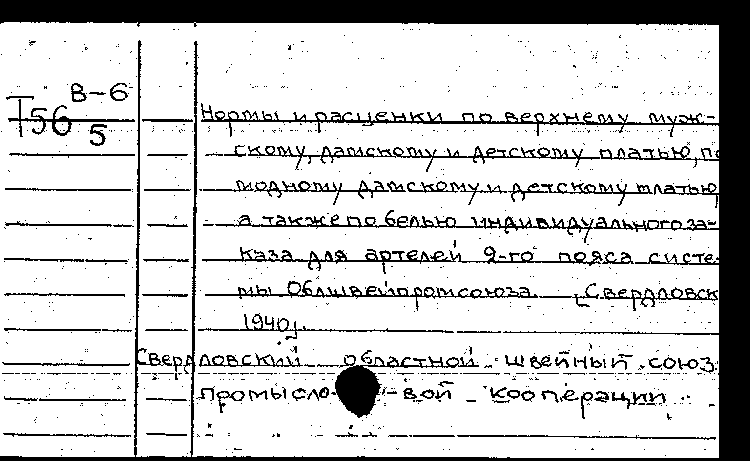 В-6
Т56
5
Нормы и расценки по верхнему муж-
скому, дамскому и детскому платью, по
модному дамскому и детскому платью,
а также по белью индивидуального за-
каза для артелей 2-го пояса систе-
мы Облшвейпромсоюза. [Свердловск
1940].
Свердловский областной швейный союз
промысло-вой кооперации